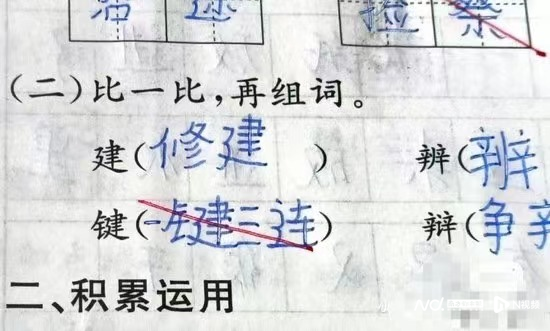 (二)比一比,再组词。
建(修建) 辨(辨
键(一键三连) 辩(争
二、积累运用